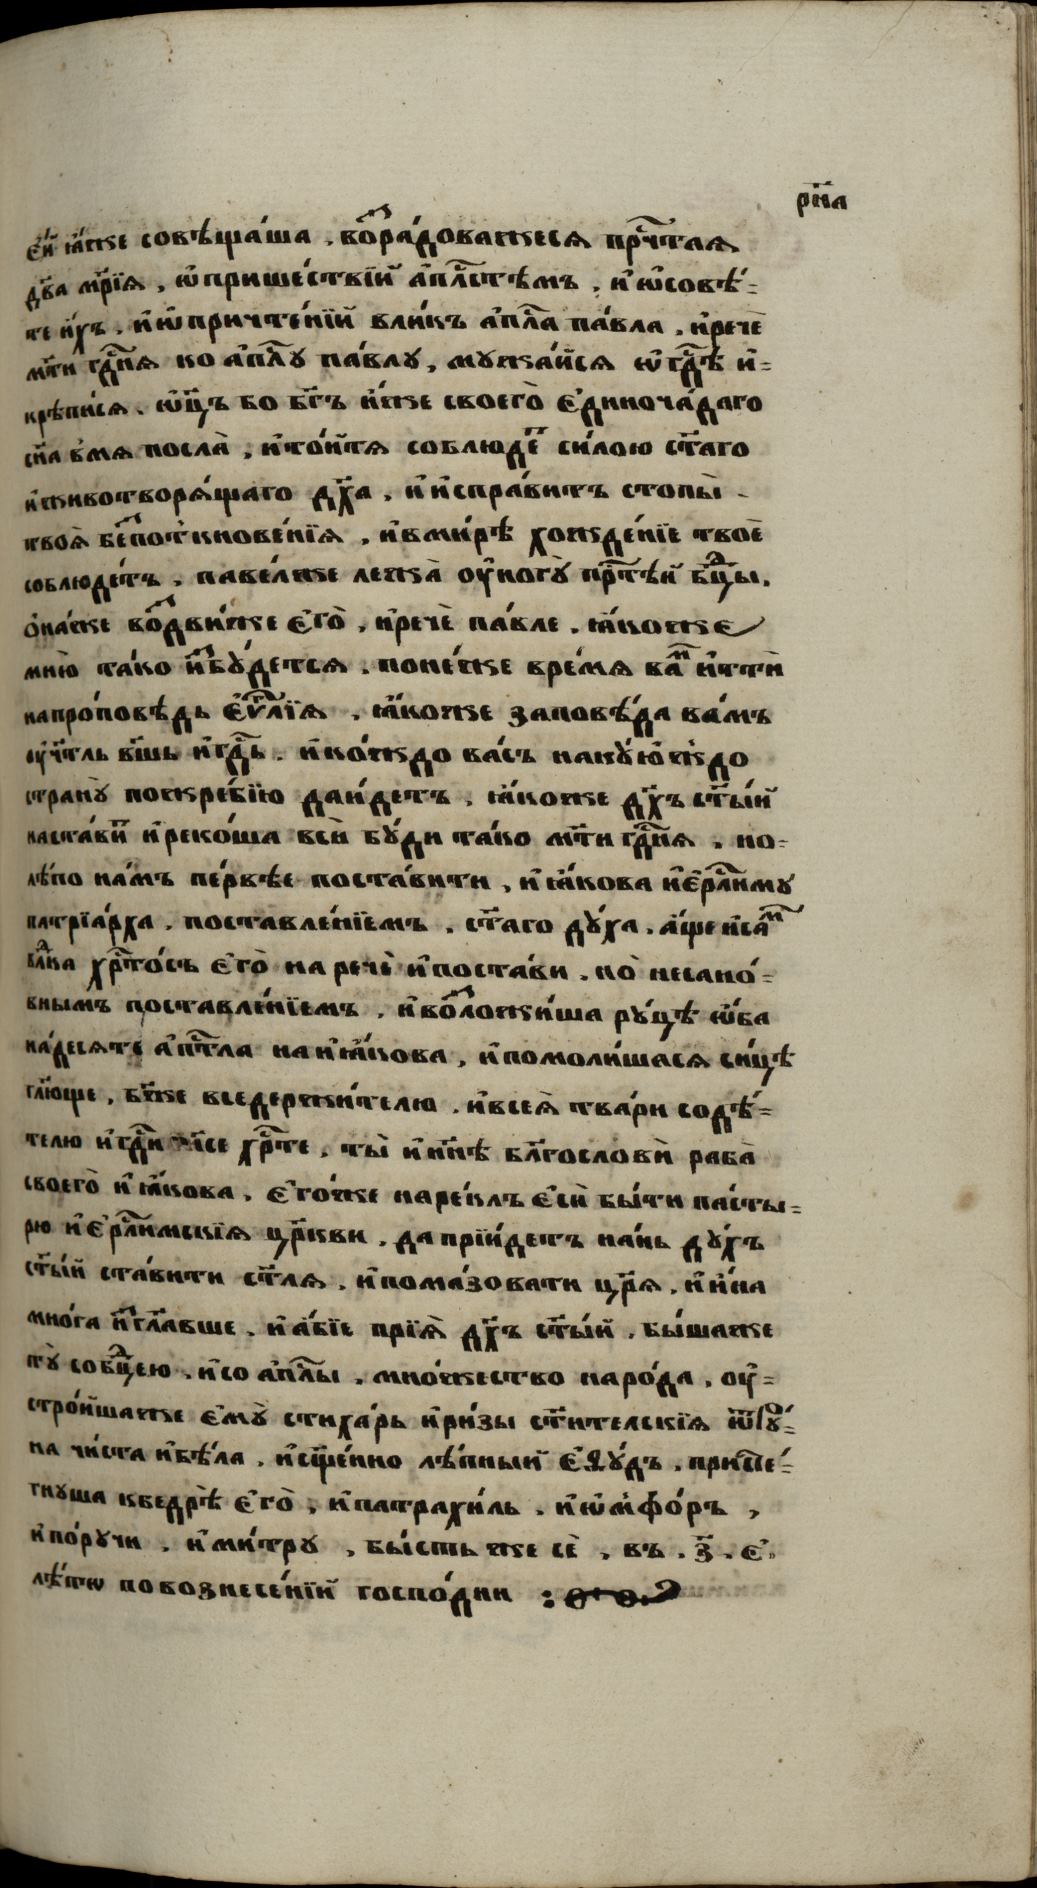 рн҃а
е҆́й ꙗ҆́же совѣща́ша , воⷥра́доважеся прⷭ҇чтая
дв҃а мр҃і́я , ѡ҆ прише́ствїй а҆пⷭ҇лстѣмъ , и҆ ѡ҆совѣ́=
те и҆́хъ , и҆ ѡ҆ причте́нїй вли́къ а҆пⷭ҇ла па́вла , и҆ речѐ
мт҃и гдⷭ҇ня ко а҆пⷭ҇лу па́влу , мужа́йся ѡ҆ гдⷭ҇ѣ и҆=
крѣпи́ся . ѻ҆ц҃ъ бо бг҃ъ и҆́же своего̀ є҆диночадаго
сн҃а в̾мя посла̀ , и҆ то́й тя соблюдеⷮ си́лою ст҃аго
и҆ животворя́щаго дх҃а , и҆ и҆спра́витъ стопы̀
твоя̀ беⷥ поткнове́нїя , и҆ в ми́рѣ хожде́нїе твоѐ
соблюде́тъ . па́велже лежа̀ оу҆ ногꙋ̀ прⷭ҇тѣй бцⷣы .
ѻ҆на́же воⷥдви́же є҆го̀ , и҆ речѐ па́вле . ꙗ҆коже
мню̀ та́ко и҆ збꙋ́детсѧ . поне́же вре́мя ваⷨ и҆ттѝ
на про́повѣдь є҆ѵⷢ҇лїя , ꙗ҆коже заповѣ́да ва́мъ
оу҆чт҃ль вш҃ь и҆ гдⷭ҇ь . и҆ ко́ждо ва́съ на кꙋ́ю ждо
странꙋ̀ по жре́бїю да и҆́детъ , ꙗ҆коже дх҃ъ ст҃ы́й
наста́виⷮ и҆ реко́ша всѝ бꙋ́ди та́ко мт҃и гдⷭ҇ня . но=
лѣ́по на́мъ пе́рвѣе поста́вити , и҆ ꙗ҆́кова и҆є҆рⷭ҇лиму
патрїа́рха . поставле́нїемъ . ст҃аго дꙋ́ха . а҆́ще и҆ саⷨ
влⷣка хрⷭ҇то́съ є҆го̀ на речѐ и҆ поста́ви . но̀ несано́=
внымъ поставле́нїемъ . и҆ воⷥложи́ша рꙋ́цѣ ѻ҆́ба
на́десяте а҆пⷭ҇тла на и҆ ꙗ҆́кова , и҆ помоли́шася си́цѣ
гл҃юще , бж҃е вседержи́телю . и҆ всея̀ тва́ри содѣ́=
телю и҆ гдⷭ҇и і҆с҃е хрⷭ҇те , ты̀ и҆ нн҃ѣ блг҃ословѝ раба̀
своего̀ и҆ ꙗ҆́кова . є҆го́же наре́клъ є҆сѝ бы́ти па́сты=
рю и҆є҆рⷭ҇лимскїя цр҃кви . да прїи́детъ на́нь дꙋ́хъ
ст҃ы́й ста́вити ст҃ля . и҆ пома́зовати цр҃я , и҆ и҆́на
мно́га и҆ гл҃авше . и҆ а҆́бїе прїя̀ дх҃ъ ст҃ы́й . бы́шаже
тꙋ̀ со бцⷣею . и҆ со а҆пⷭ҇лы . мно́жество наро́да . оу҆=
стро́йшаже є҆мꙋ̀ стиха́рь и҆ ри́зы ст҃ительскїя
на чи́ста и҆ бѣ́ла . и҆ сщ҃е́нно лѣ́пный є҆фꙋ́дъ .
гнуша к бедрѣ̀ є҆го̀ , и҆ патрахи́ль . и҆ ѡ҆мфо́ръ ,
и҆ по́ручи . и҆ ми́тру , бы́сть же сѐ , въ . з҃ . є҆
лѣ́то по вознесе́нїй госпо́дни :